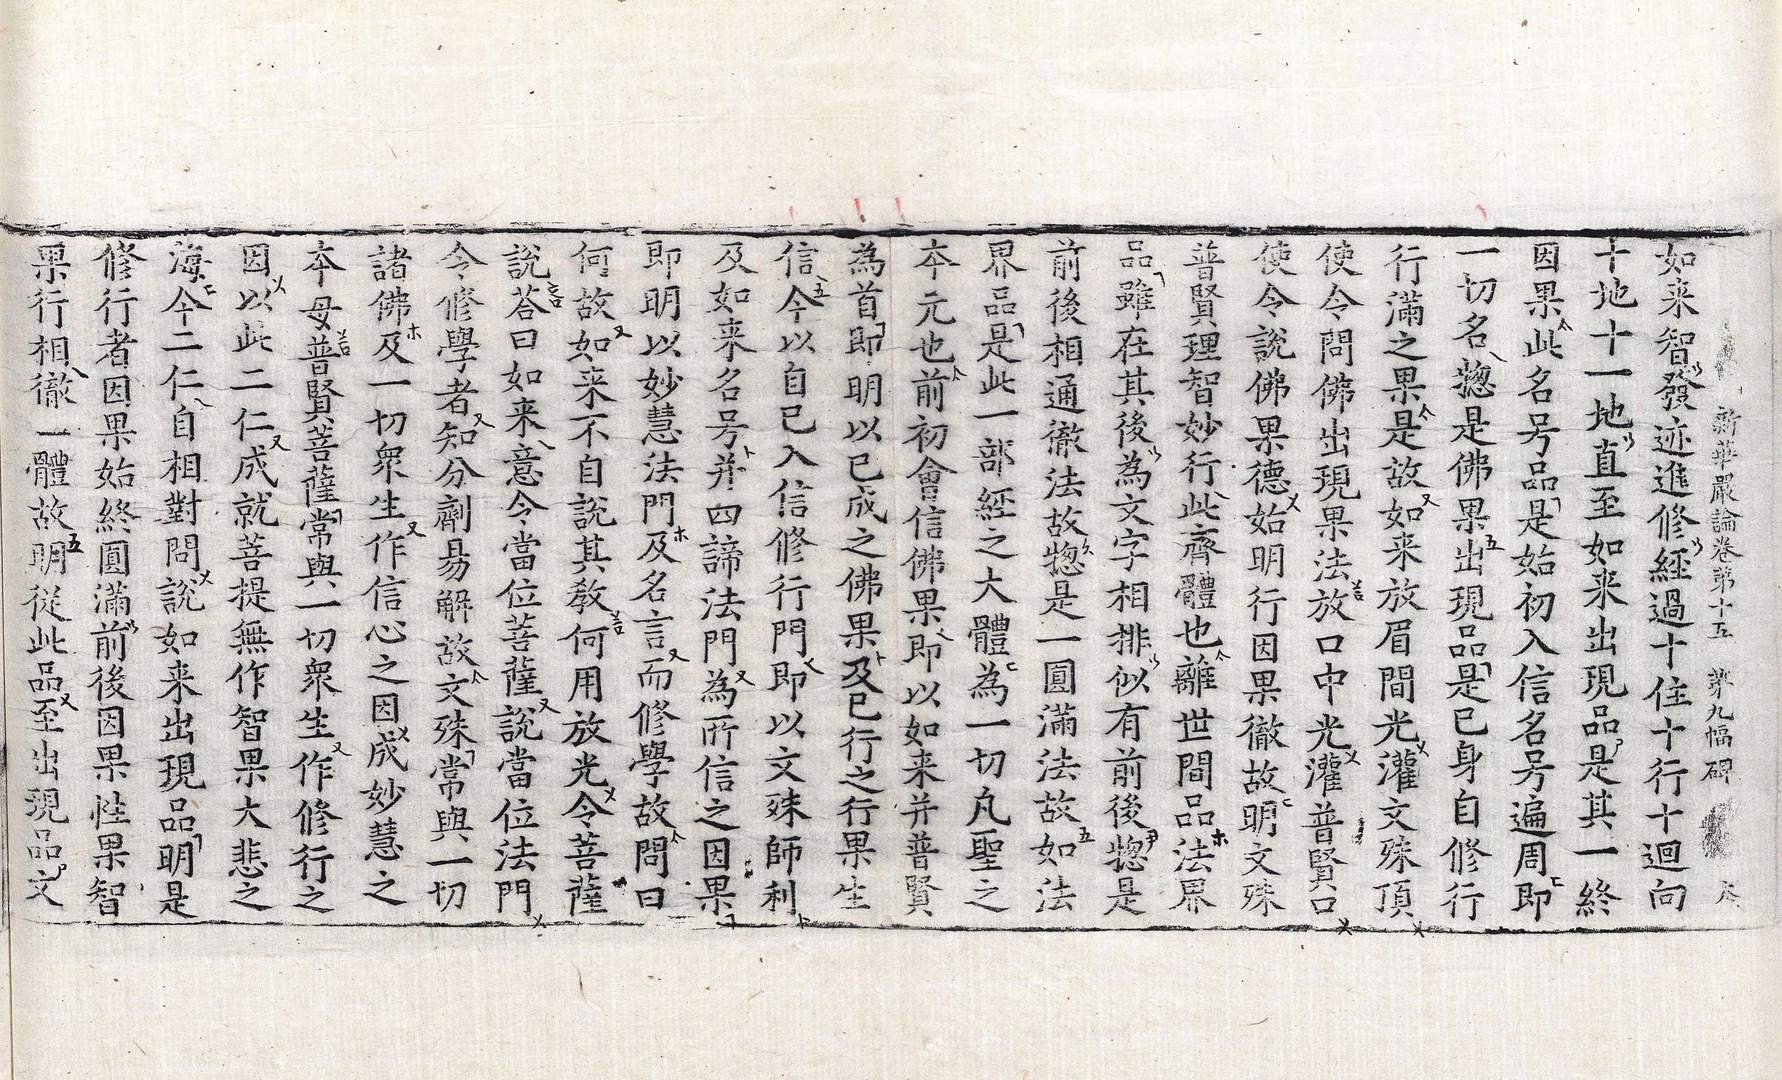 新華嚴論卷第十五　第九幅　碑
如来智發迹進修經過十住十行十迴向
十地十一地直至如来出現品是其一終
因果此名号品是始初入信名号遍周即
一切名揔是佛果出現品是已身自修行
行滿之果是故如来放眉間光灌文殊頂
使令問佛出現果法放口中光灌普賢口
使令說佛果德始明行因果徹故明文殊
普賢理智妙行此齊體也離世間品法界
品雖在其後為文字相排似有前後揔是
前後相通徹法故揔是一圓滿法故如法
界品是此一部經之大體為一切凡聖之
夲元也前初會信佛果即以如来并普賢
為首即明以已成之佛果及已行之行果生
信今以自已入信修行門即以文殊師利
及如来名号并四諦法門為所信之因果
即明以妙慧法門及名言而修學故問曰
何故如来不自說其教何用放光令菩薩
說荅曰如来意令當位菩薩說當位法門
令修學者知分劑易解故文殊常與一切
諸佛及一切衆生作信心之因成妙慧之
夲母普賢菩薩常與一切衆生作修行之
因以此二仁成就菩提無作智果大悲之
海今二仁自相對問說如来出現品明是
修行者因果始終圓滿前後因果性果智
果行相徹一體故明從此品至出現品文